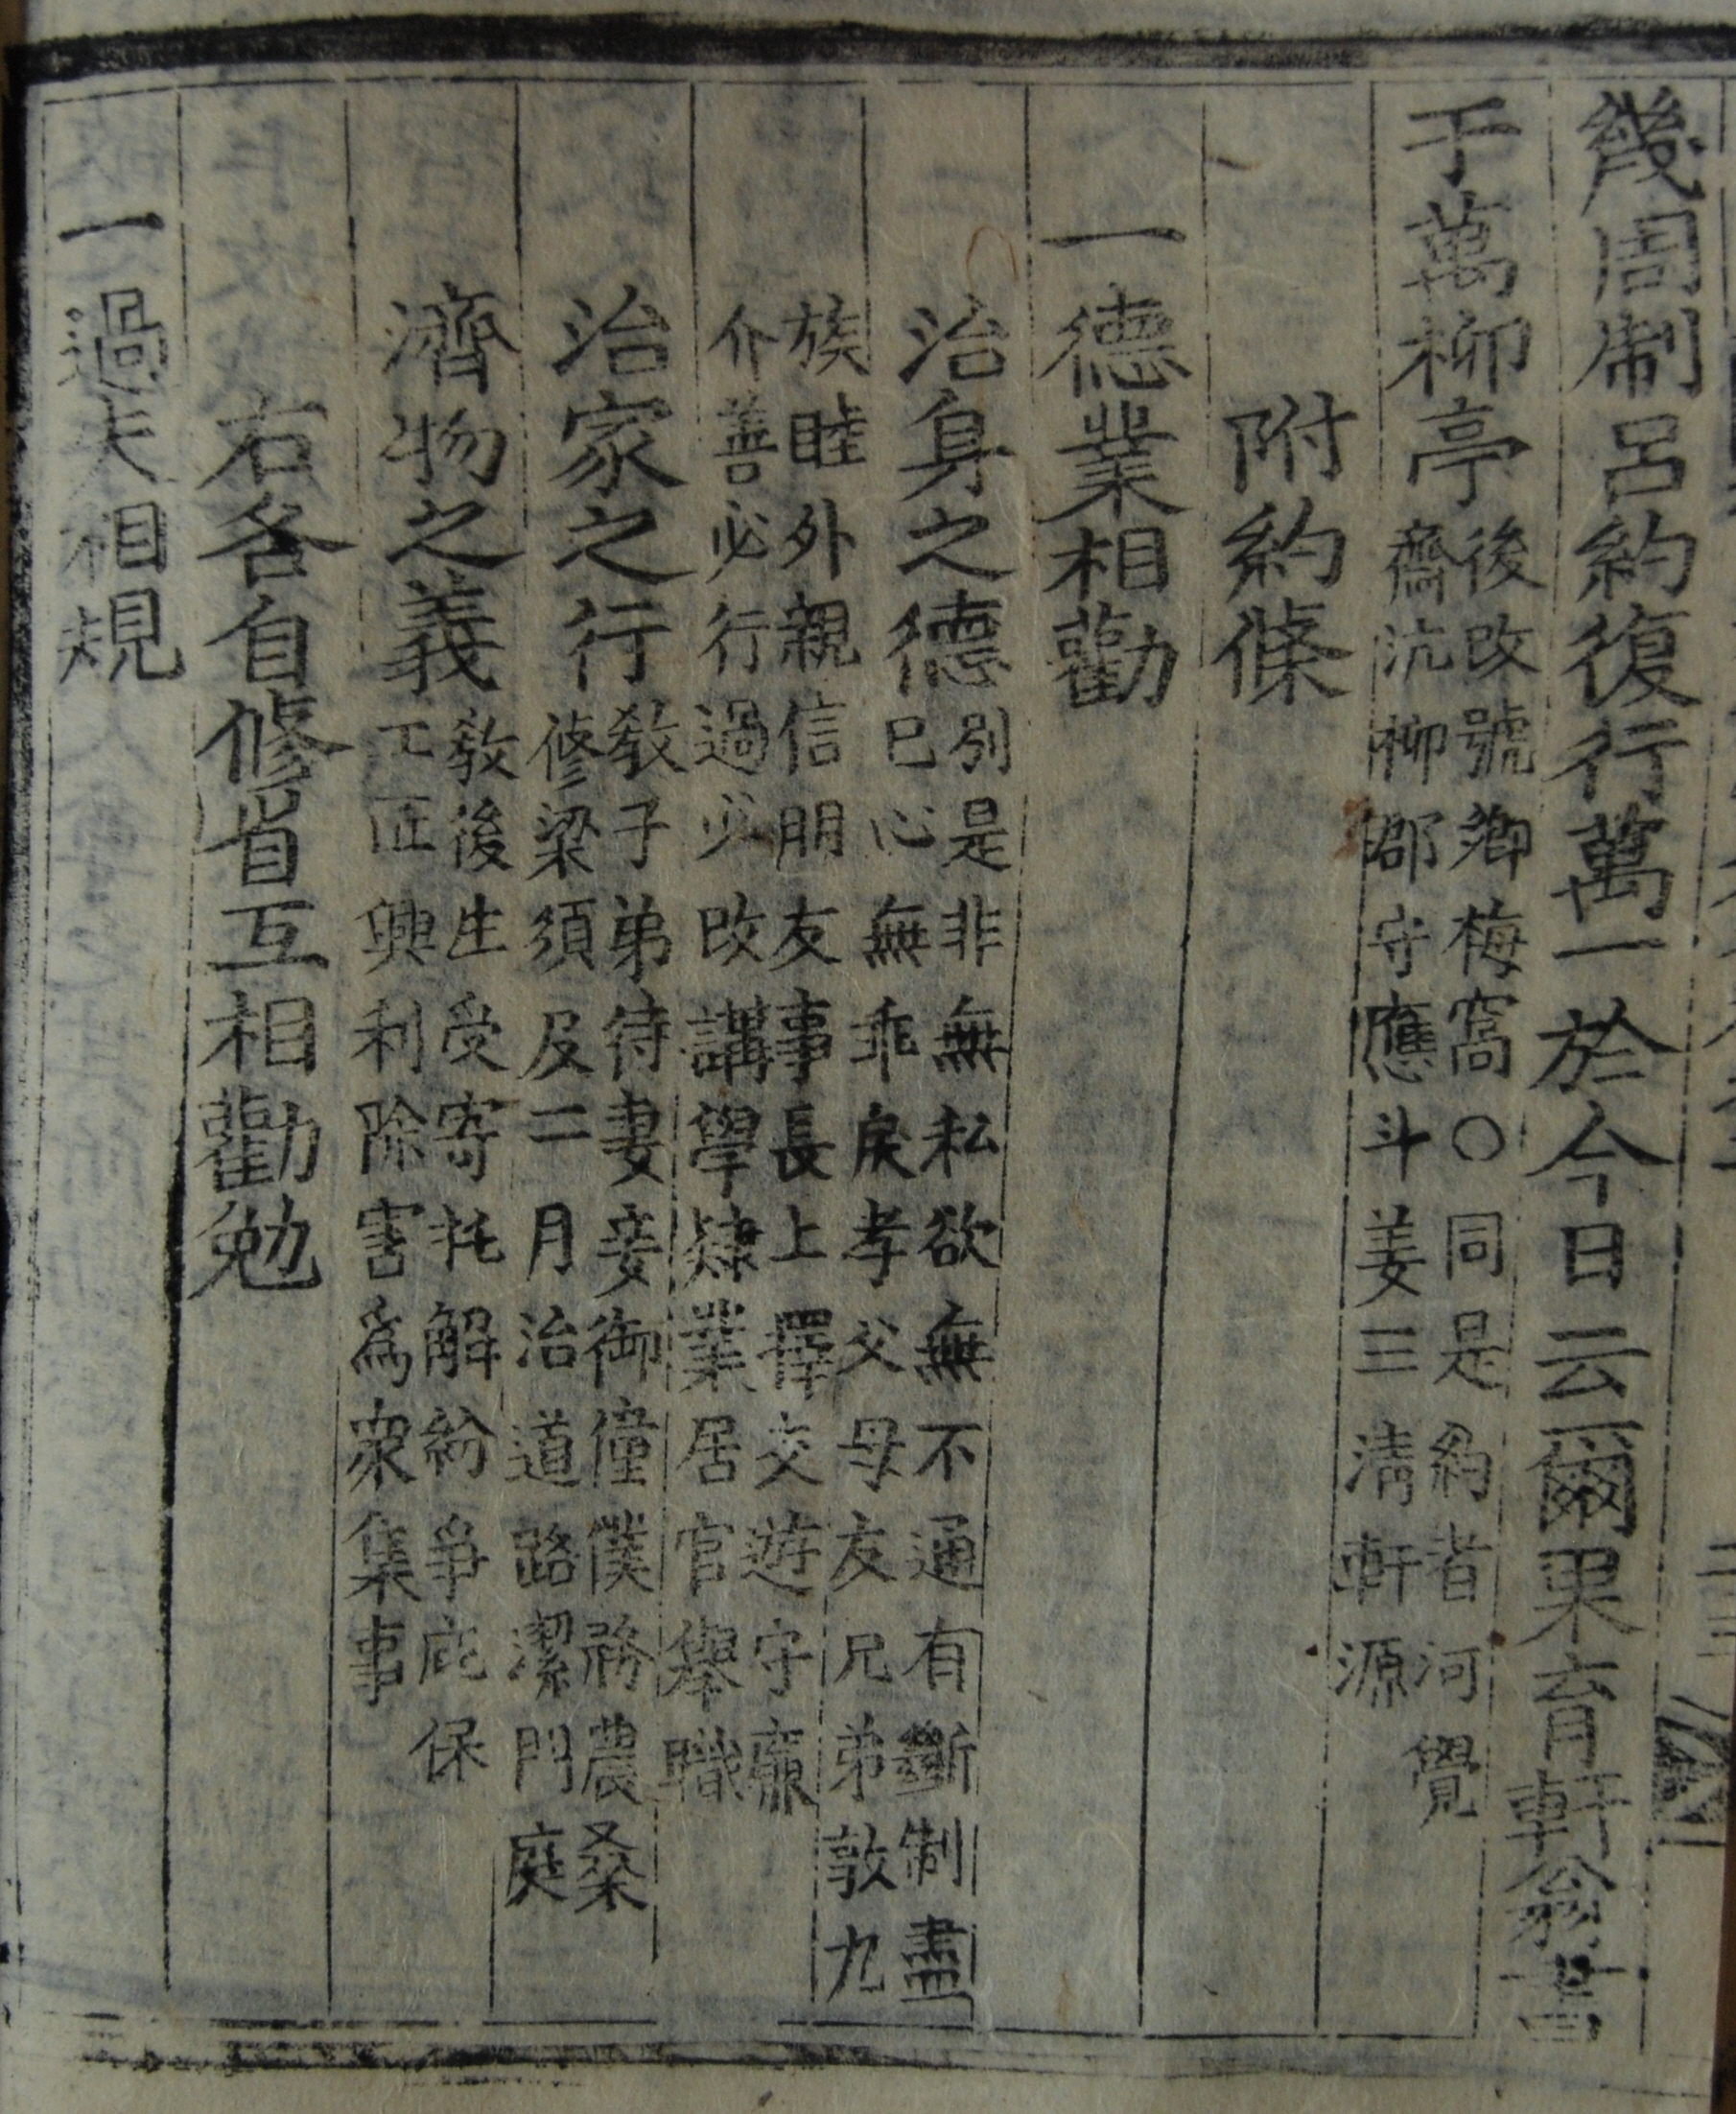 幾周制呂約復行萬一於今日云爾果育軒翁書
于萬柳亭
後改號鄕梅窩○同是約者河覺
齋沆柳郡守應斗姜三淸軒源
附約條
一德業相勸
治身之德
別是非無私欲無不通有斷制盡
己心無乖戾孝父母友兄弟敦九
族睦外親信朋友事長上擇交遊守廉
介善必行過必改講學肄業居官擧職
治家之行
敎子弟待妻妾御僮僕務農桑
修梁須及二月治道路潔門庭
濟物之義
敎後生受寄托解紛爭庇保
工匠興利除害爲衆集事
右各自修省互相勸勉
一過失相規